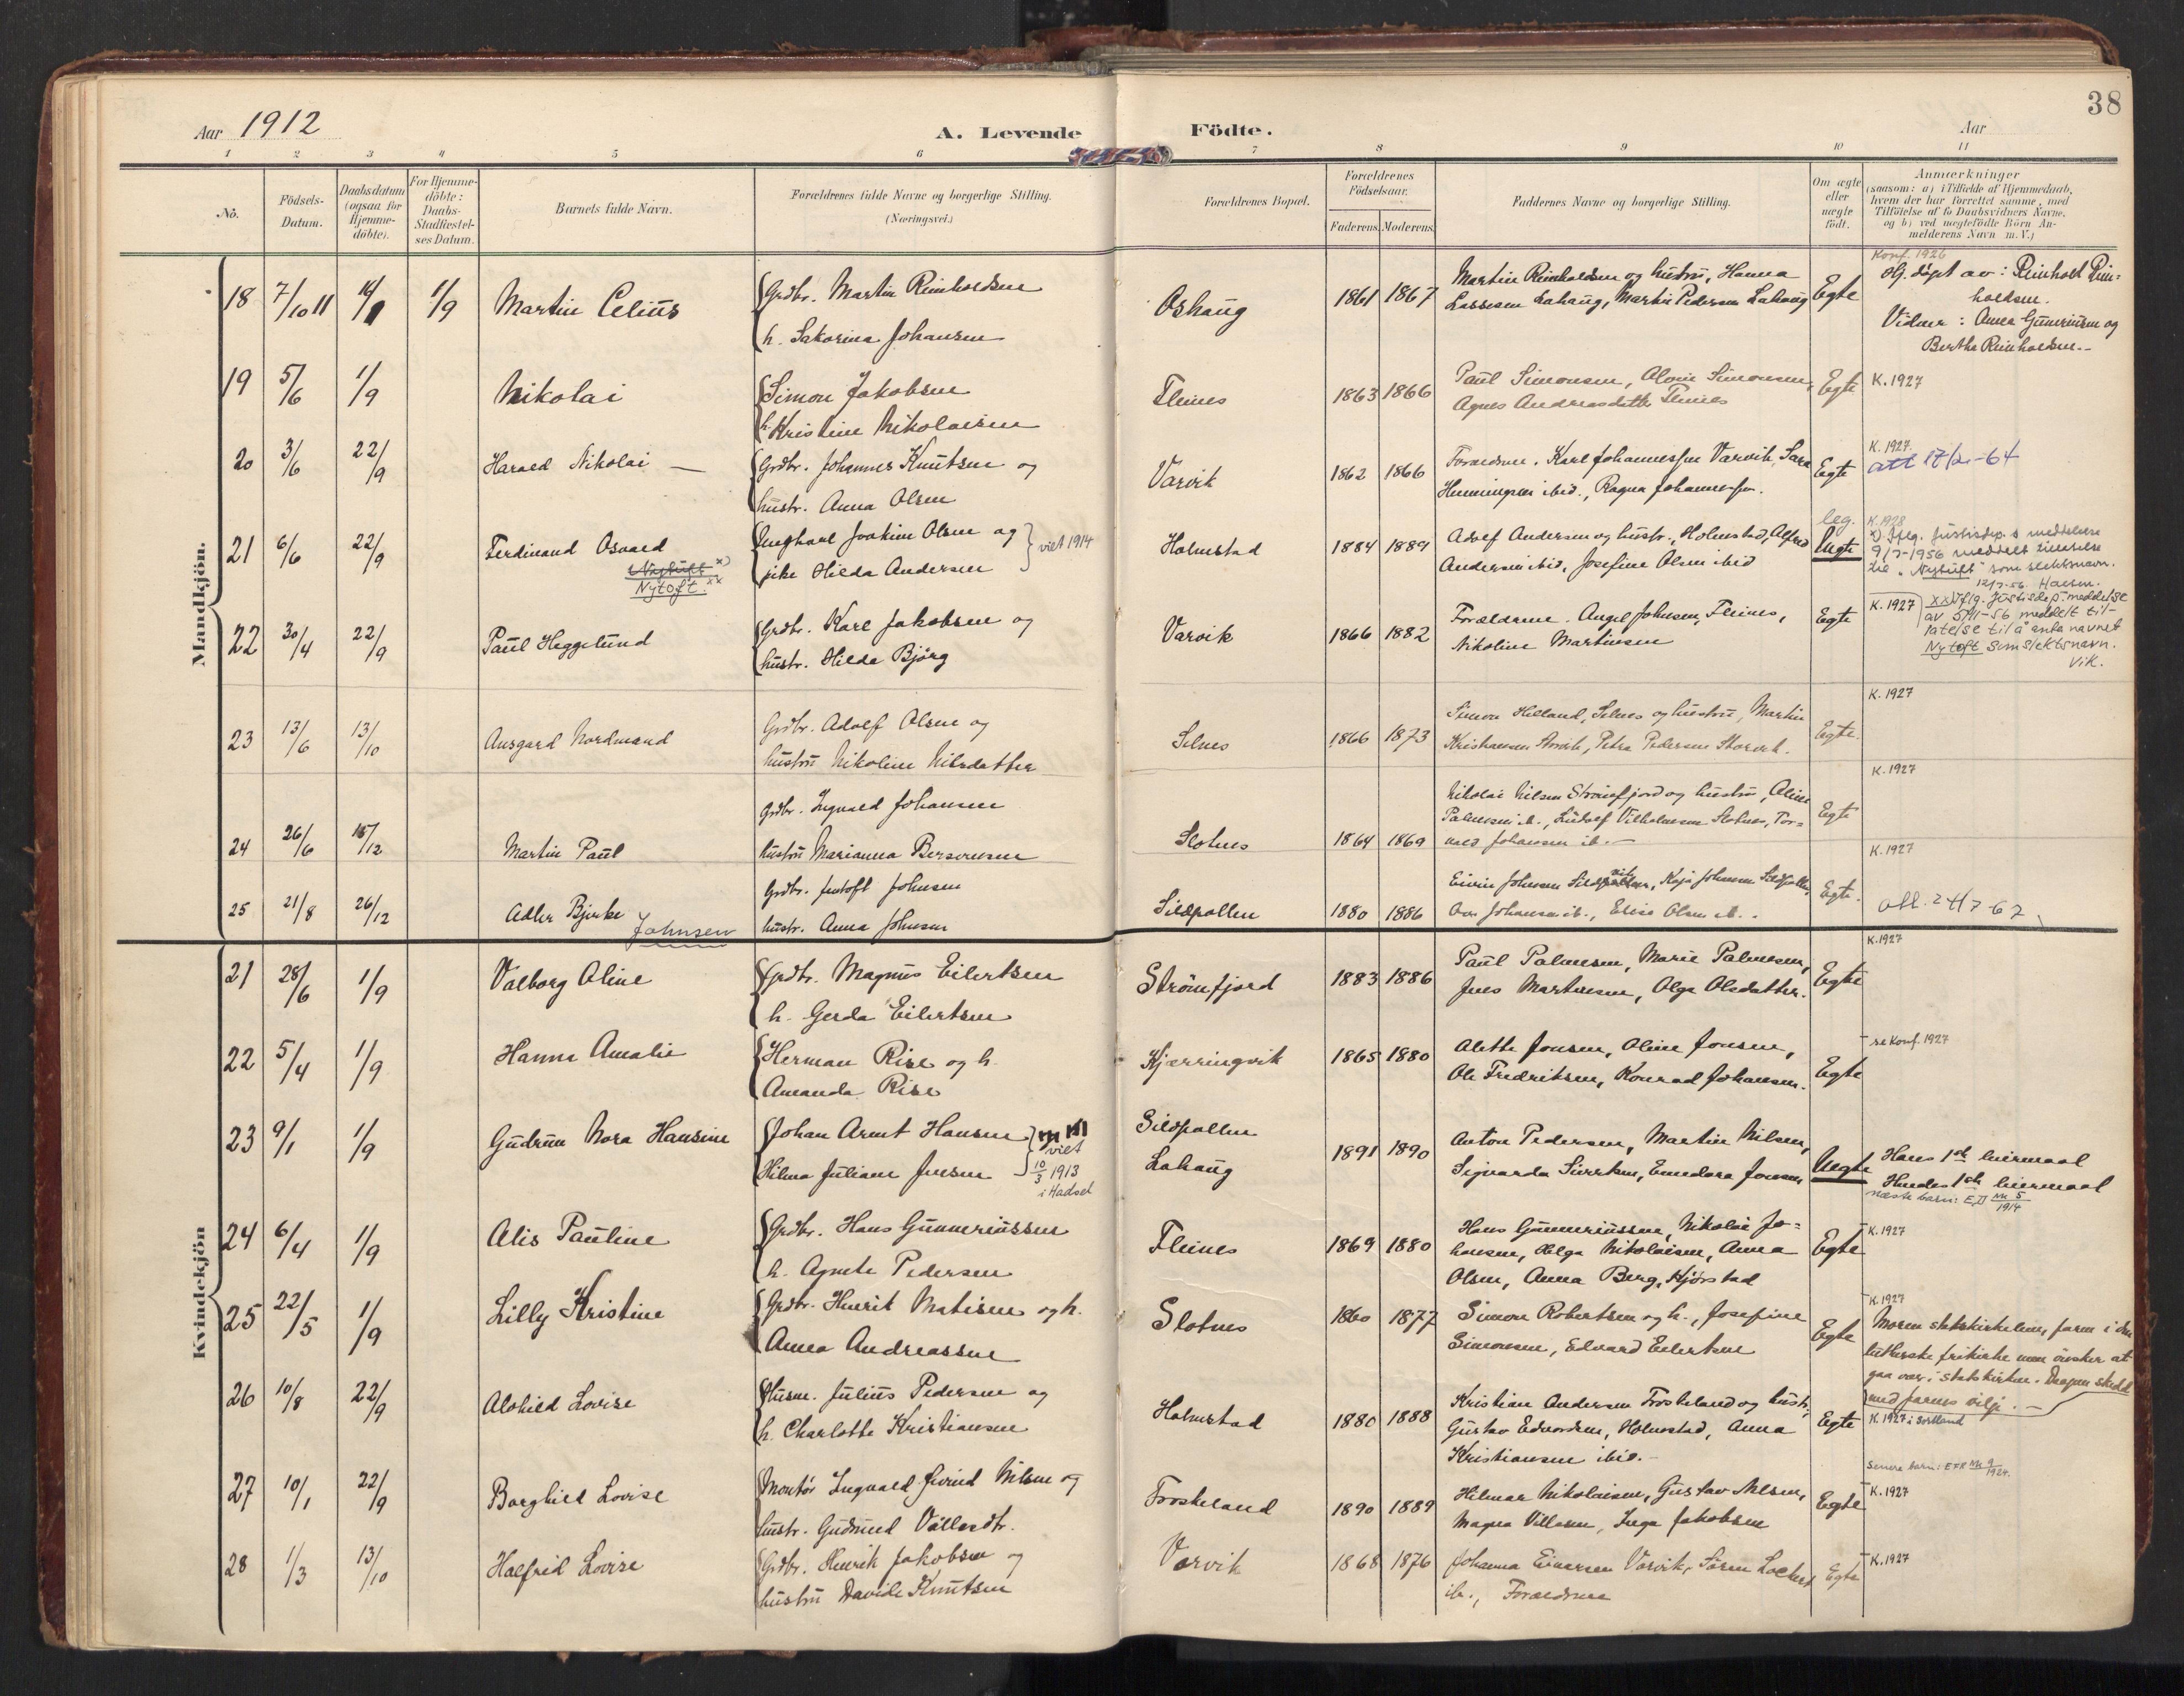 38
Aar 1912
A. Levende Födte.
Aar
1 2 3 4 5 6 7 8 9 10 11
No.
Födsels-
Datum.
Daabsdatum
(ogsaa for
Hjemme-
döbte).
For Hjemme-
döbte:
Daabs-
Stadfæstel-
ses Datum.
Barnets fulde Navn.
Forældrenes fulde Navne og borgerlige Stilling.
(Næringsvei.)
Forældrenes Bopæl.
Forældrenes
Födselsaar.
Faderens. Moderens.
Faddernes Navne og borgerlige Stilling.
Om ægte
eller
uægte
födt.
Anmærkninger
(saasom: a) i Tilfælde af Hjemmedaab,
hvem der har forrettet samme, med
Tilföielse af to Daabsvidners Navne,
og b) ved uægtefödte Börn An-
melderens Navn m. V.)
Mandkjön.
18 7/10 11 1/9 Martin Celius
Grdbr. Martin Reinholdsen
h. Sakorina Johansen
Oshaug 1861 1867
Martin Reinholdsen og hustru, Hanna
Lassesen Lahaug, Martin Pedersen Lahaug
Egte
Konf. 1926
Hj. døpt av: Reinhold Rein-
holdsen.
Vidner: Anna Gunneriusen og
Bertha Reinholdsen.
19 5/6 1/9 Nikolai
Simon Jakobsen
h. Kristine Nikolaisen
Fleines 1863 1866
Paul Simonsen, Simonsen,
Agnes Andreasdatter Fleines
Egte K. 1927
20 3/6 22/9 Harald Nikolai
Grdbr. Johannes Knutsen og
hustr. Anna Olsen
Varvik 1862 1866
Forældrene. Karl Johannessen Varvik, Sara
Henningsen ibid., Ragna Johannessen.
Egte K. 1927
21 6/6 22/9 Ferdinand Osvald
Nytuft x)
Nytoft. xx
Ungkarl Joakim Olsen og
pike Hilda Andersen
viet 1914
Holmstad 1884 1889
Adolf Andersen og hustr., Holmstad, Alfred
Andersen ibid, Josefine Olsen ibid
leg.
Uegte
K. 1928
x) Iflg. Justisdep.s meddelelse
9/3-1956 meddelt tillatelse
til "Nytuft" som slektsnavn.
22 30/4 22/9 Paul Heggelund
Grdbr. Karl Jakobsen og
hustr. Hilda Bjørg
Varvik 1866 1882
Forældrene. Angel Johnsen, Fleines,
Nikoline Martinsen
Egte K. 1927
xx) Iflg. Justisdep. meddelelse
av 5/11-56 meddelt til-
latelse til å anta navnet
Nytoft som slektsnavn.
Vik.
23 13/6 13/10 Ansgard Nordmand
Grdbr. Adolf Olsen og
hustru Nikoline Nilsdatter
Selnes 1866 1873
Simon Helland, Selnes og hustru, Martin
Kristiansen , Petra Pedersen Storvik.
Egte. K. 1927
24 26/6 /12 Martin Paul
Grdbr. Ingvald Johansen
hustru Marianna
Slotnes 1864 1869
Nikolai Nilsen Strømfjord og hustru, Aline
Palmesen ib., Ludvig Vilhelmsen Slotnes, Tor-
Johansen ib.
Egte K. 1927
25 21/8 26/12 Adler Bjerke
Johnsen
Grdbr. Johnsen
hustr. Anna Johnsen
Sildpollen 1880 1886
Johnsen , Kaja Johnsen Sildpollen,
Johansen ib., Elise Olsen ib.
Egte. K. 1927
Kvindekjön
21 28/6 1/9 Valborg Oline
Grdbr. Magnus Eilertsen
h. Gerda Eilertsen
Strömfjord 1883 1886
Paul Palmesen, Marie Palmesen,
Jens Martinsen, Olga Olsdatter.
Egte K. 1927
22 5/4 1/9 Hanna Amalie
Herman Rise og h.
Amanda Rise
Kjærringvik 1865 1880
Alette Jonsen, Oline Jonsen,
Ole Fredriksen, Konrad Johansen.
Egte se Konf. 1927
23 9/1 1/9 Gudrun Nora Hansine
Johan Arnt Hansen
Hilma Juliane Jensen
viet
10/3 1913
i Hadsel
Sildpollen
Lahaug
1891 1890
Anton Pedersen, Martin Nilsen,
Sigvarda Sivertsen, Jonsen
Uegte
Hans 1ste leiermaal
Hendes 1ste leiermaal
næste barn: Nr. 5 1914
24 6/4 1/9 Alis Pauline
Grdbr. Hans Gunneriussen
h. Agnete Pedersen
Fleines 1869 1880
Hans Gunneriussen, Nikolai Jo-
hansen, Helga Nikolaisen, Anna
Olsen, Anna Berg, Hjørstad
Egte K. 1927
25 22/5 1/9 Lilly Kristine
Grdbr. Henrik Matisen og h.
Anna Andreassen
Slotnes 1860 1877
Simon Robertsen og h., Josefine
Simonsen, Edvard Eilertsen
Egte
K. 1927
Moren statskirkelem, faren i den
lutherske frikirke men ønsker at
gaa over i statskirken. Daapen skedd
med farens vilje.
26 10/8 22/9 Alvhild Lovise
Husm. Julius Pedersen og
h. Charlotte Kristiansen
Holmstad 1880 1888
Kristian Andersen Froskeland og hustr,
Gustav Edvardsen, Holmstad, Anna
Kristiansen ibid.
Egte K. 1927 i Sortland
27 10/1 22/9 Borghild Lovise
Montør Ingvald Eivind Nilsen og
hustr. Gudrund
Froskeland 1890 1889
Hilmar Nikolaisen, Gustav Nilsen,
Magna Villasen, Inga Jakobsen
Egte
Senere barn: Nr. 9 1924.
K. 1927
28 1/3 13/10 Halfrid Lovise
Grdbr. Henrik Jakobsen og
hustru Davida Knutsen
Varvik 1868 1876
Johanna Einersen Varvik, Søren Lockert
ib., Forældrene
Egte K. 1927